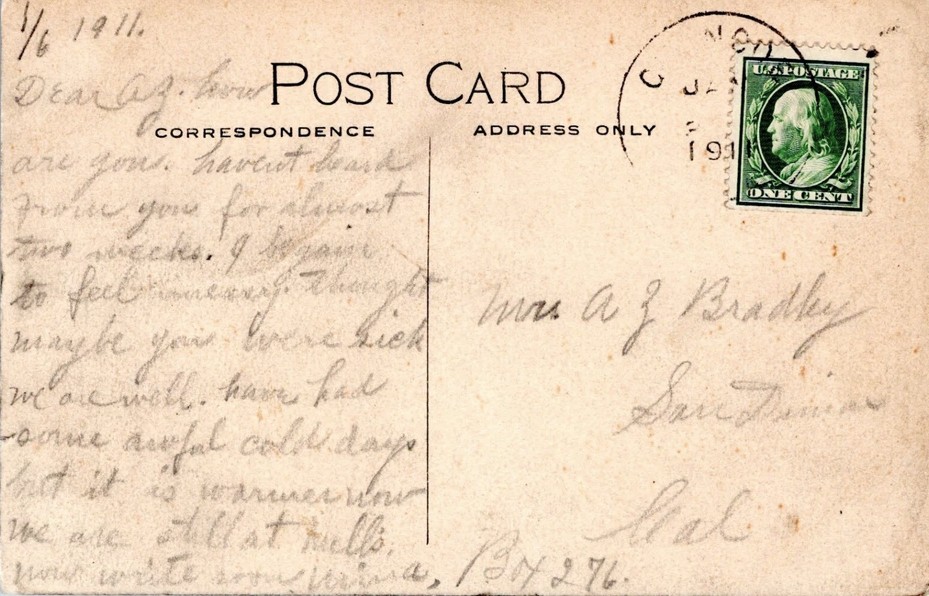 1/6 1911.
POST CARD
CORRESPONDENCE
ADDRESS ONLY
Dear A Z. how
are you. havent heard
From you for almost
two weeks. I began
to feel uneasy. thought
maybe you were sick
we are well. have had
some awful cold days
but it is warmer now
we are still at mells.
now write soon
Mrs A Z Bradley
San Dimas
Cal
Box 276.
JA
1911
U.S. POSTAGE
ONE CENT